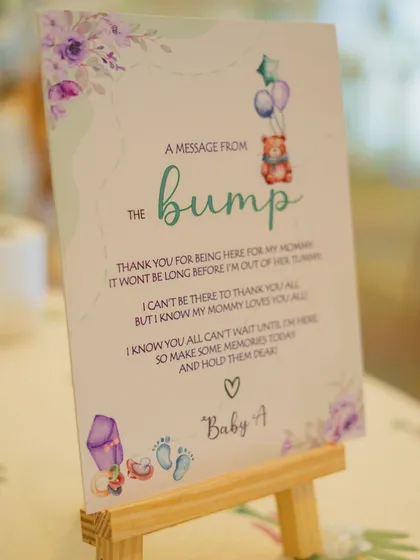 A MESSAGE FROM
THE bump
THANK YOU FOR BEING HERE FOR MY MOMMY
IT WONT BE LONG BEFORE I'M OUT OF HER TUMMY.
I CAN'T BE THERE TO THANK YOU ALL
BUT I KNOW MY MOMMY LOVES YOU ALL!
I KNOW YOU ALL CAN'T WAIT UNTIL I'M HERE,
SO MAKE SOME MEMORIES TODAY
AND HOLD THEM DEAR!
Baby A